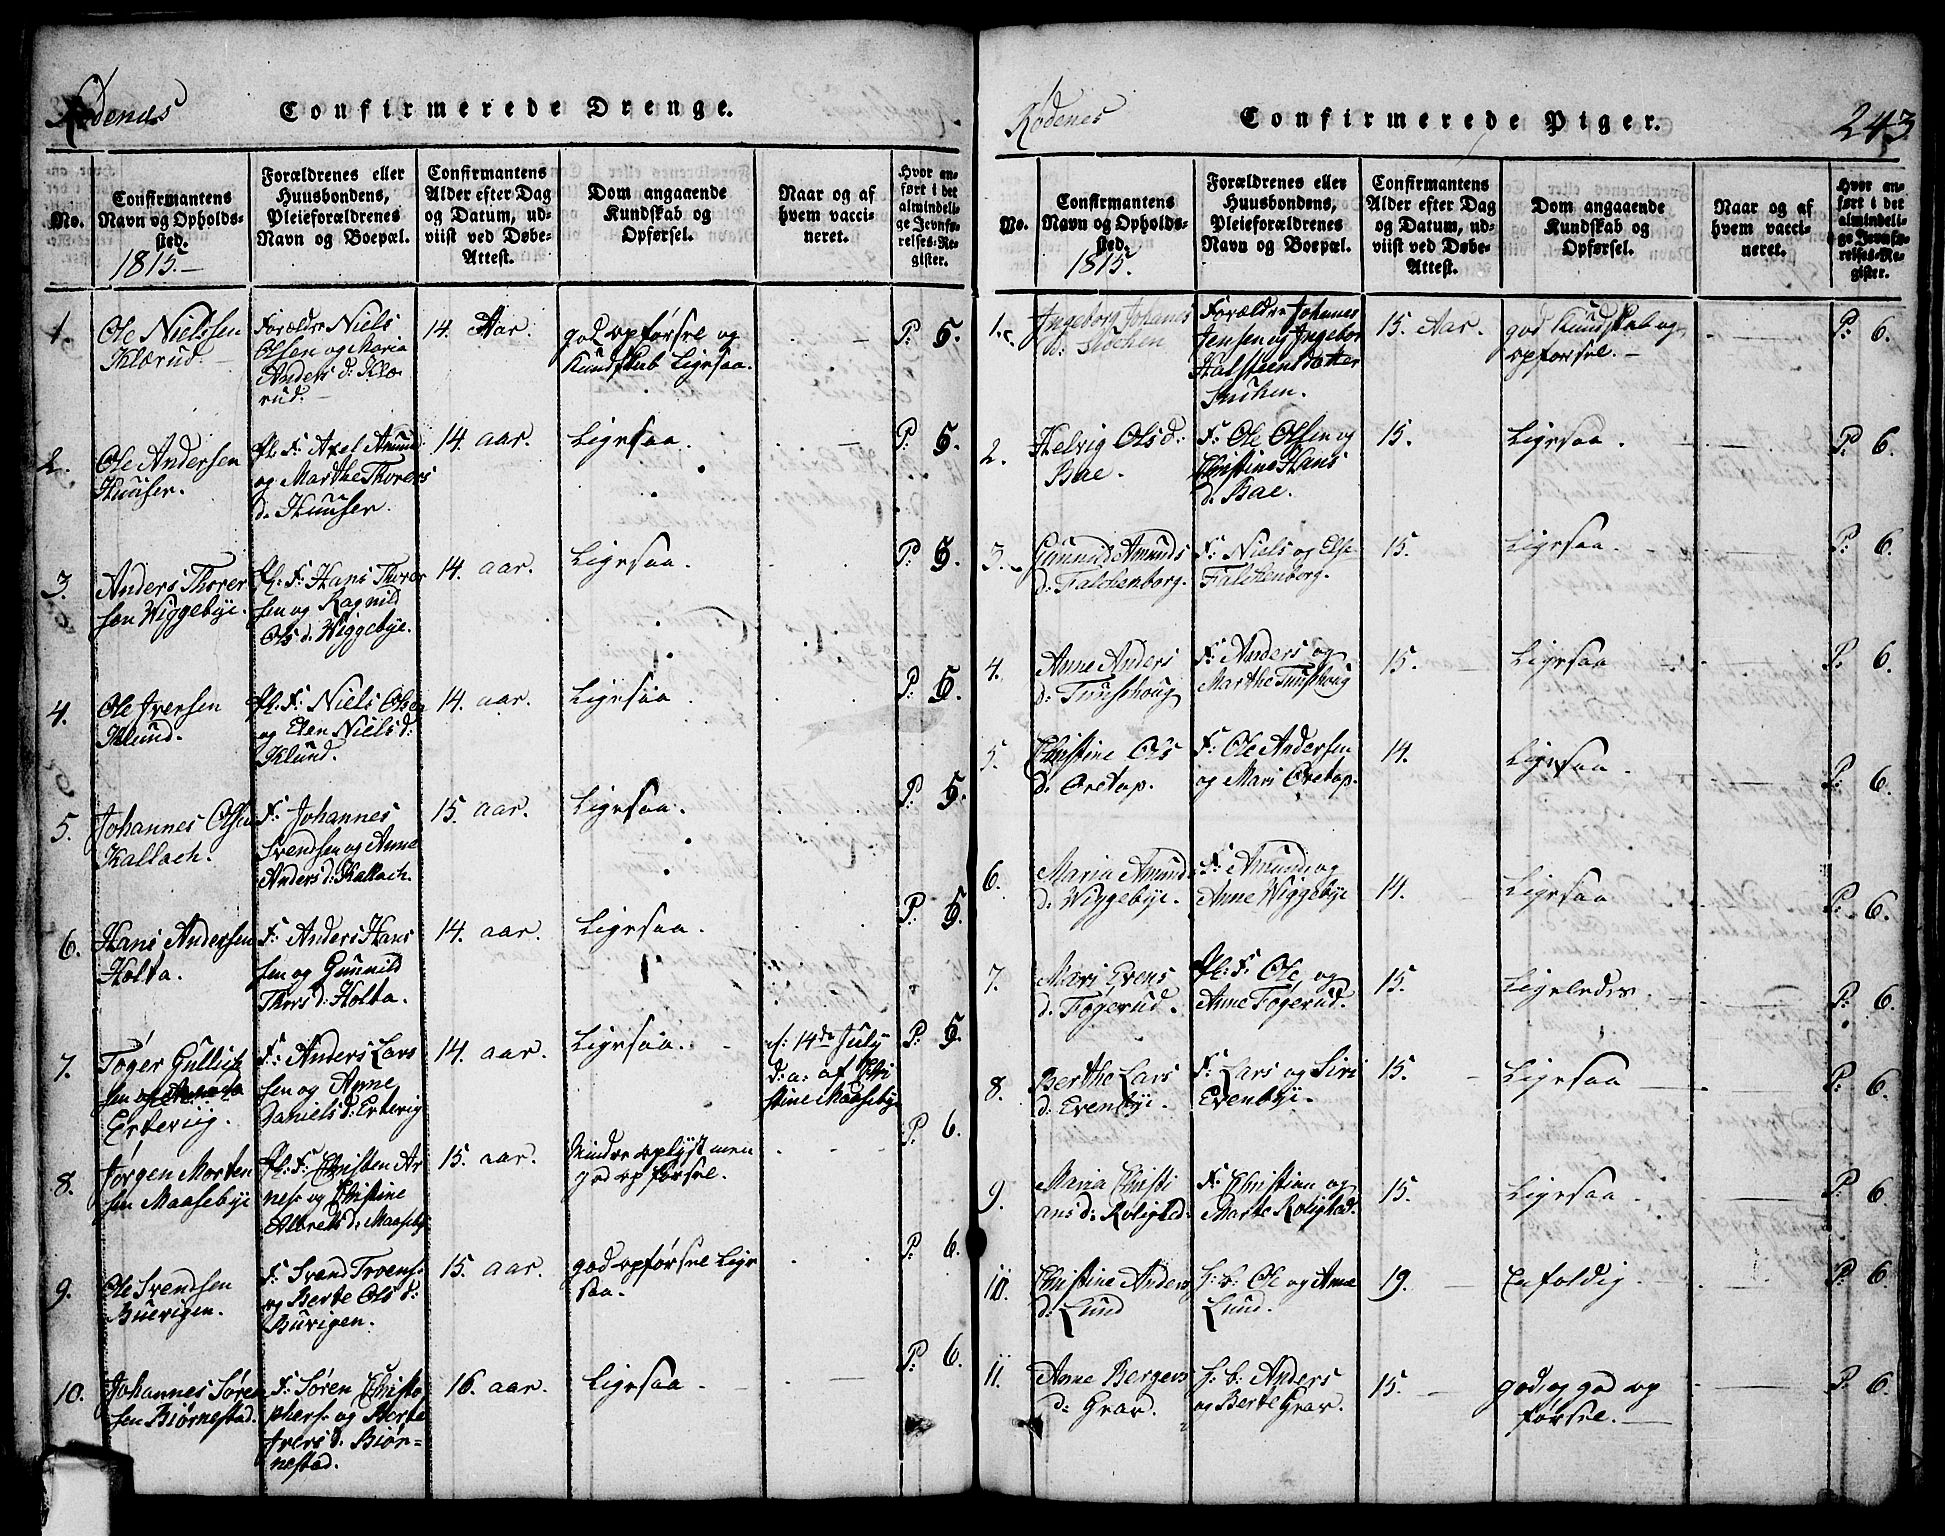 Rødenes
Confirmerede Drenge.
No.
Confirmantens Navn og Opholds-sted.
1815.
Forældrenes eller Huusbondens, Pleieforældrenes Navn og Boepæl.
Confirmantens Alder efter Dag og Datum, ud-viist ved Døbe-Attest.
Dom angaaende Kundskab og Opførsel.
Naar og af hvem vacci-neret.
Hvor an-ført i det almindeli-ge Jevnfø-relses-Re-gister.
1.
Ole Nielssen
Klærud.
Forældre Niels
Olsen og Maria
Anders d: Klæ-
rud.
14. Aar.
god opførsel og
Kundskab Ligesaa.
P: 5.
2.
Ole Andersen
Huuser.
Pl: F: Axel Amund
og Marthe Thorers
d. Huuser.
14 aar.
Ligesaa.
P. 5.
3.
Anders Thorer
sen Wiggebye.
Pl: F: Hans Thorer
sen og Ragnild
Ols d. Wiggebye.
14 aar.
Ligesaa.
P: 5.
4.
Ole Iversen
Klund.
Pl. F: Niels Olsen
og Elen Niels d:
Klund.
14. aar.
Ligesaa.
P: 5.
5.
Johannes Olsen
Kallach.
F: Johannes
Svendsen og Anne
Anders d: Kallach.
15. aar.
Ligesaa.
P: 5.
6.
Hans Andersen
Holta.
F: Anders Hans
sen og Gunnild
Thors d: Holta.
14. aar.
Ligesaa.
P: 5.
7.
Toger Gullich
sen
Erteviig.
F: Anders Lars
sen og Anne
Daniels d: Ertevig
14. aar.
Ligesaa.
14de July
d: a: af Chri
stine Maasebye
P: 5.
8.
Jørgen Morten
sen Maasebye
Pl: F: Christen Ar
nes: og Christine
Albrets d: Maasebye
15. aar.
Mindre oplyst men
god opførsel.
P: 6.
9.
Ole Svendsen
Buerigen.
F: Svend Troens:
og Berte Ols d:
Burigen.
15. aar.
god opførsel Lige
saa.
P: 6.
10.
Johannes Søren
sen Biørnestad.
F: Søren Christo
phers: og Berte
Ivers d. Biør-
nestad.
16. aar.
Ligesaa.
P: 6.
Rødenes
Confirmerede Piger.
243
No.
Confirmantens Navn og Opholds-sted.
1815.
Forældrenes eller Huusbondens, Pleieforældrenes Navn og Boepæl.
Confirmantens Alder efter Dag og Datum, ud-viist ved Døbe-Attest.
Dom angaaende Kundskab og Opførsel.
Naar og af hvem vacci-neret.
Hvor an-ført i det almindeli-ge Jevnfø-relses-Re-gister.
1.
Ingeborg Johanes
d:
Forældre Johannes
Jensen og Ingebor
Halsteensdatter
15. Aar.
god Kundskab og
opførsel.
P: 6.
2.
Helvig Ols d:
Bae.
F: Ole Olsen og
Christine Hans
d. Bae.
15.
Ligesaa.
P: 6.
3.
Gunnild Amunds
d: Falchenborg.
F: Niels og Else
Falchenborg.
15.
Ligesaa.
P: 6.
4.
Anne Anders
d: Tuusehoug
F: Anders og
Marthe Tuusehoug
15.
Ligesaa
P: 6.
5.
Christine Ols
d: Oretop.
F: Ole Andersen
og Mari Oretop.
14.
Ligesaa.
P: 6.
6.
Maria Amund
d: Wiggebye.
F: Amund og
Anne Wiggebye
14.
Ligesaa
P: 6.
7.
Mari Evens
d: Fogerud.
Pl: F: Ole og
Anne Fogerud.
15.
Ligeledes.
P: 6.
8.
Berthe Lars
d: Evenbye.
F: Lars og Siri
Evenbye.
15.
Ligesaa
P: 6.
9.
Maria Christi
ans d: Rolighed.
F: Christian og
Marte Rolighed.
15.
Ligesaa
P: 6.
10.
Christine Anders
d: Lund
H: b: Ole og Anne
Lund.
19.
Enfoldig
P: 6
11.
Anne Bergers
d: Grav.
H: b: Anders
og Berte Grav.
15.
god og god op
førsel.
P: 6.